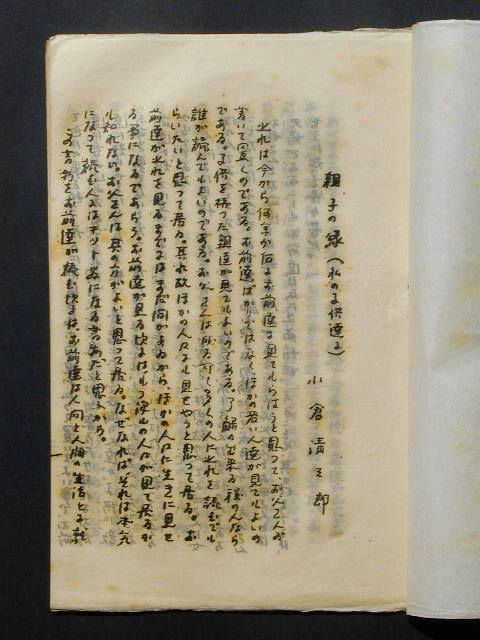 親子の縁（私の子供達に）
小倉清三郎
之れは今から何年か何十お前達に見てもらはうと思って、お父さんが
書いて置くのである。お前達ばかりではなく、ほかの若い人達が見てもよいの
である。子供を持った親達が見てもよいのである。了解の出来る程の人なら
誰が読んでもよいのである。お父さんは成る可く多くの人に之れを読んでも
らいたいと思って居る。其れ故ほかの人にも見せやうと思って居る。お
前達が之れを見るまでにはまだ間があるから、ほかの人に先きに見せ
る事になるであらう。お前達が見る頃にはもう沢山の人が見て居るか
も知れない。お父さんは其の方がよいと思って居る。なぜなれば、それは本気
になって読む人はホット
此の書物をお前達が読む頃は、お前達は人間と人間の生活とに